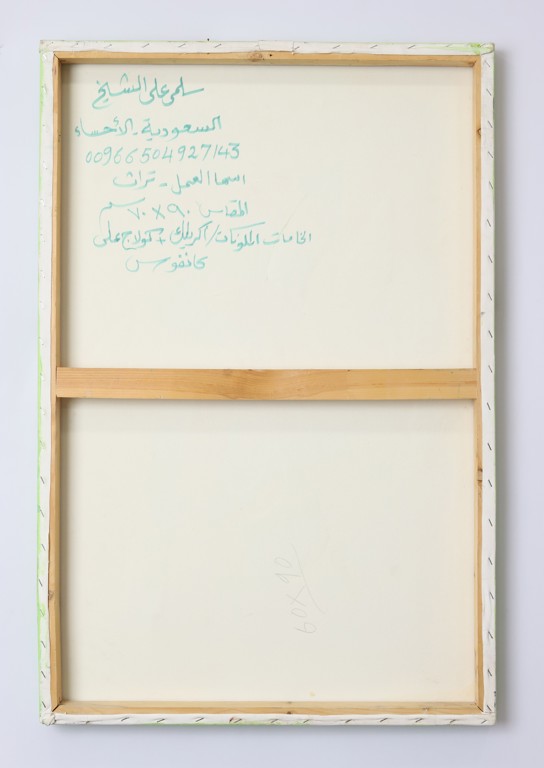 سلمى على الشيخ
السعودية - الأحساء
00966504927143
اسم العمل - تراث
المقاس ٩٠ × ٧٠ سم
الخامات المكونات / اكريلك + كولاج على
كانفوس
60x90